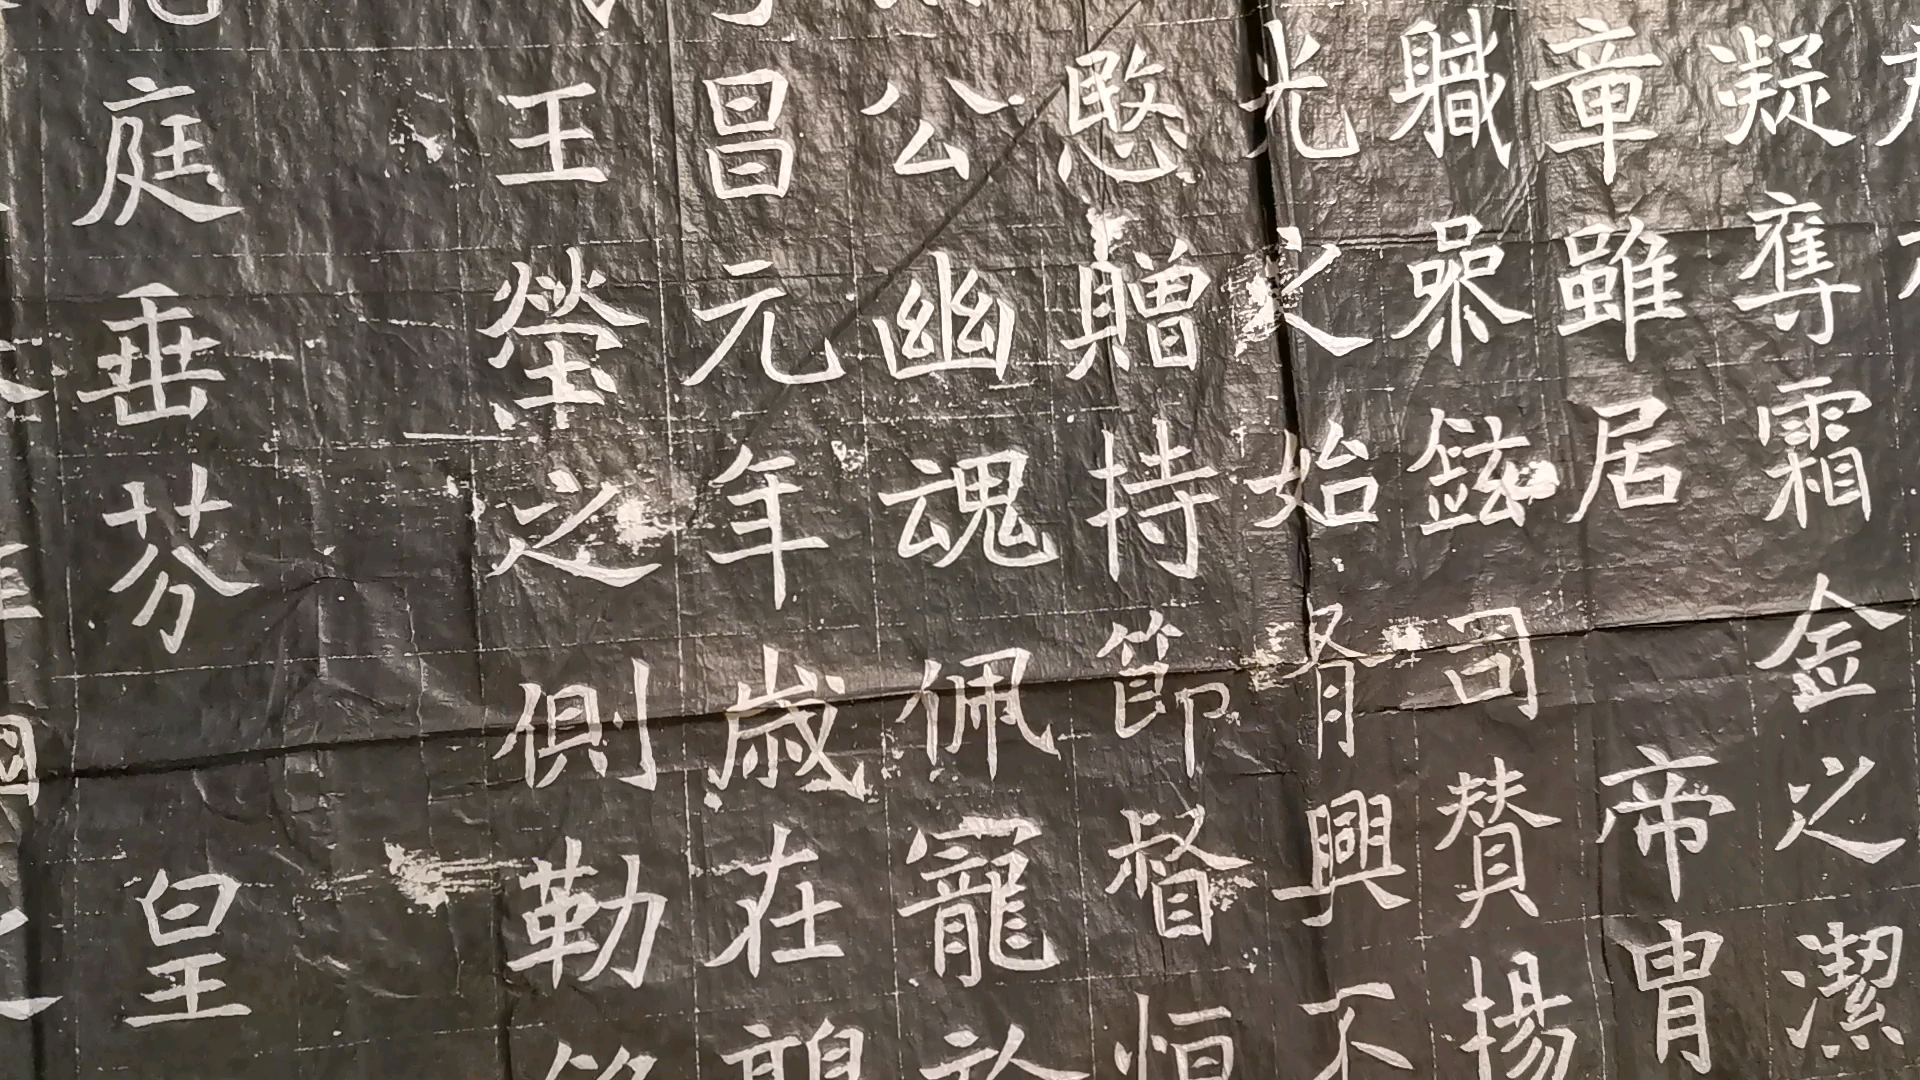 凝奪霜金之潔
章雖居帝冑
職喿鉉司賛揚
光火始脊興不
愍贈持節督恒
公幽魂佩寵於
昌元年歳在
王塋之側勒銘
庭垂芬皇